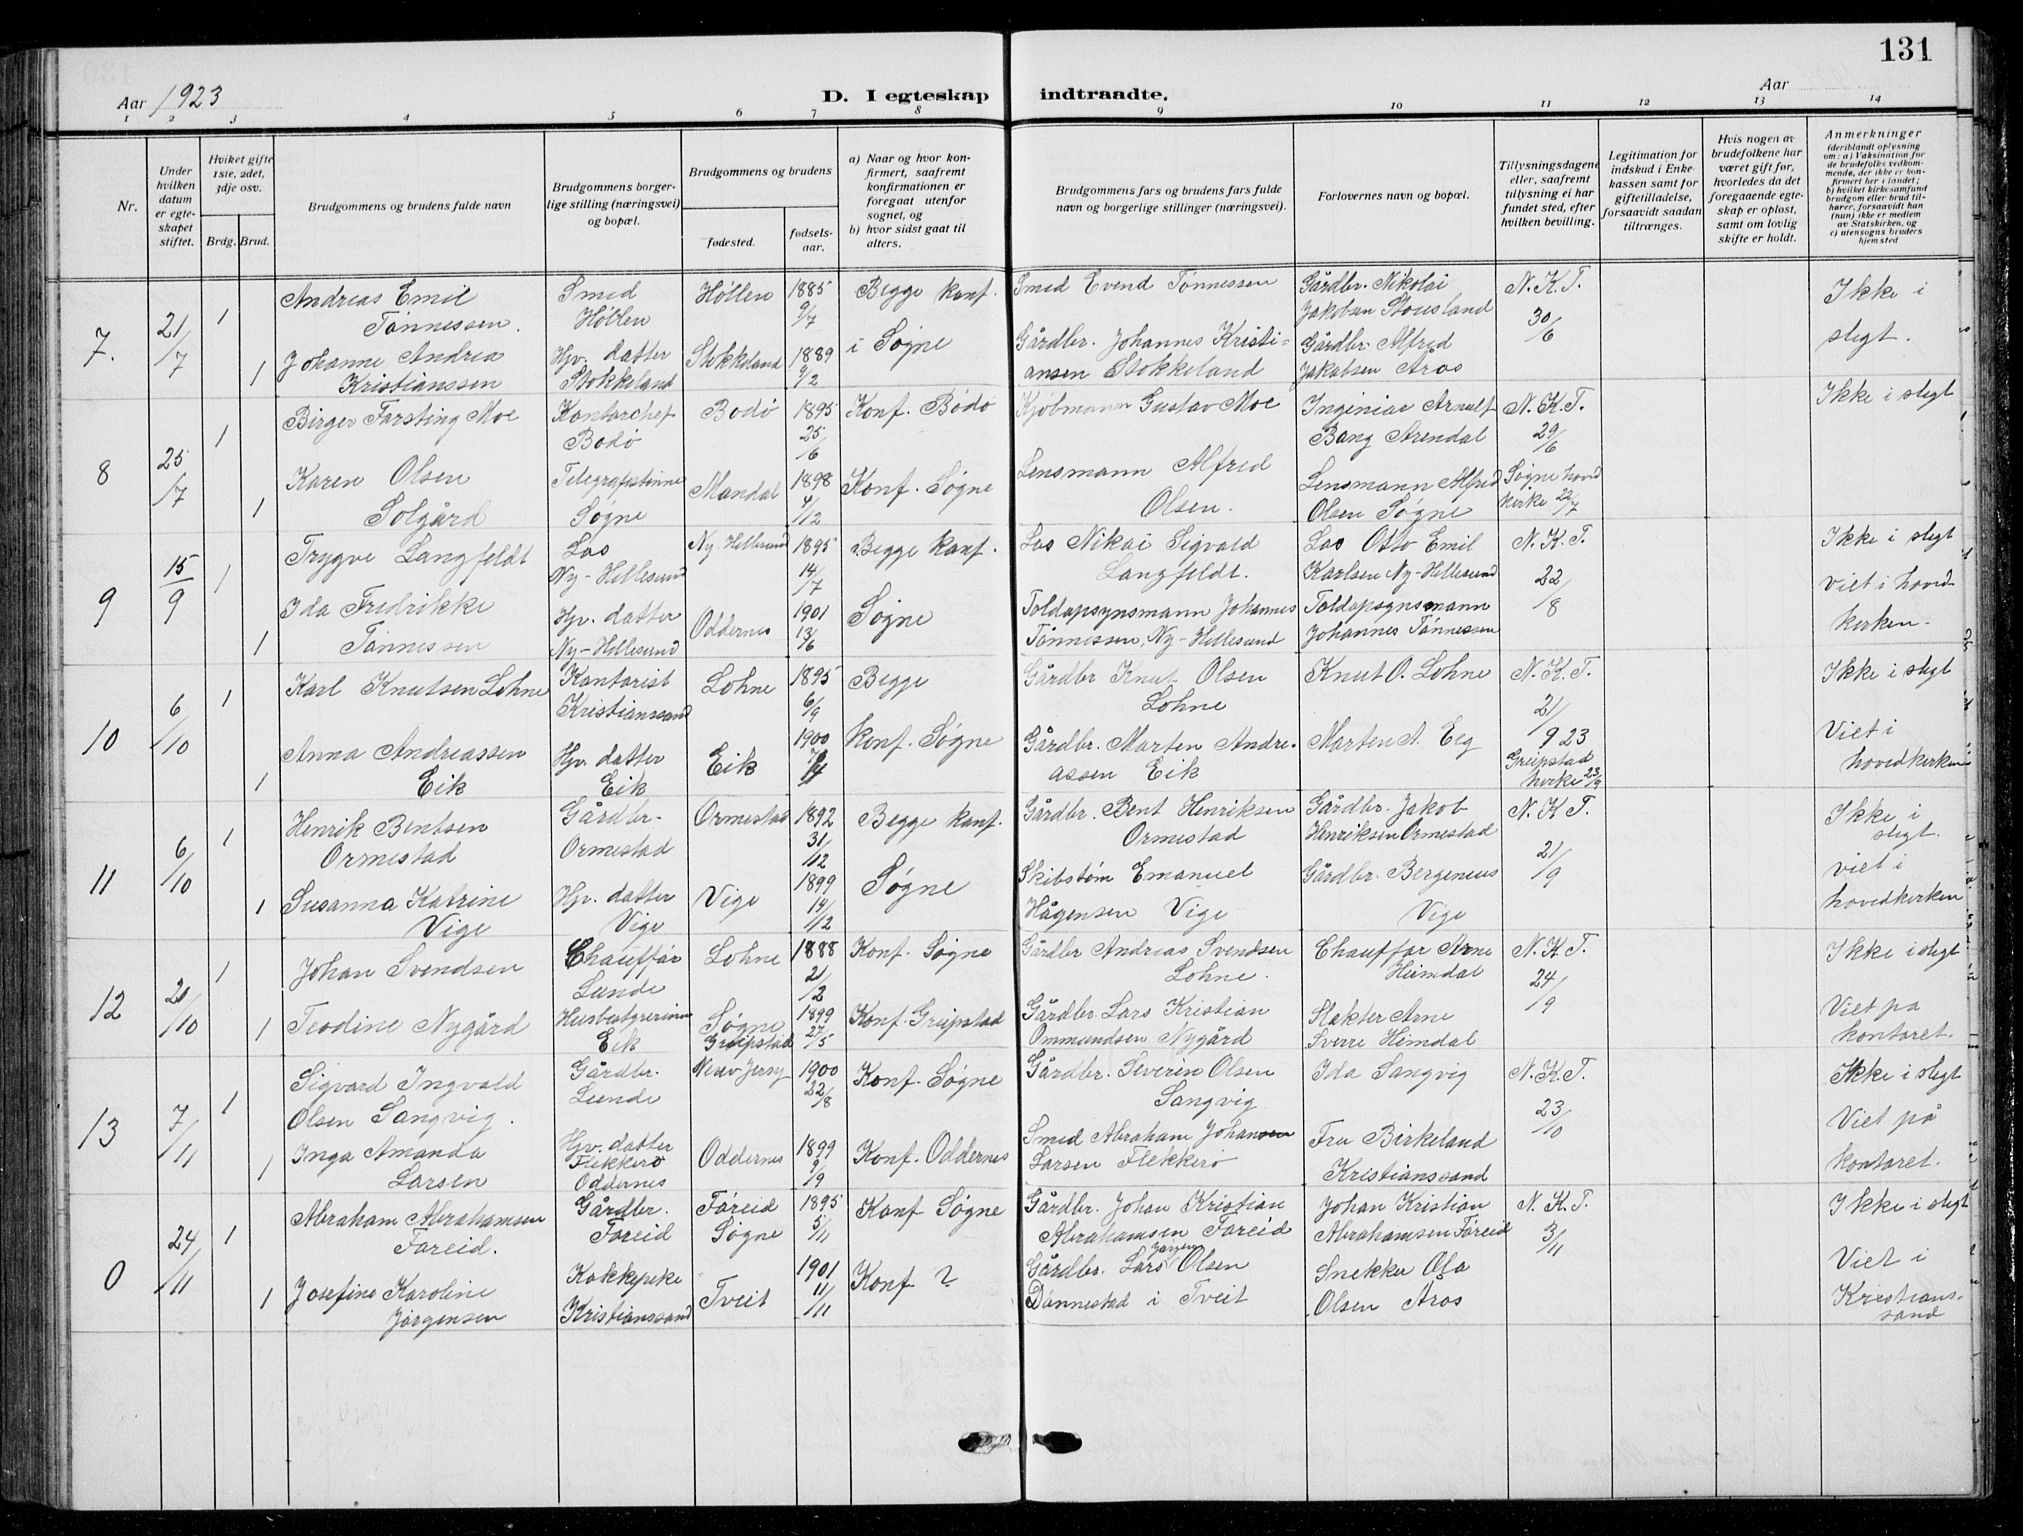 131
Aar 1923
D. I egteskap indtraadte.
Aar
1 2 3 4 5 6 7 8 9 10 11 12 13 14
Nr.
Under hvilken datum er egteskapet stiftet.
Hviket gifte 1ste, 2det, 3dje osv.
Brdg. Brud.
Brudgommens og brudens fulde navn
Brudgommens borgerlige stilling (næringsvei) og bopæl.
Brudgommens og brudens
fødested.
fødselsaar.
a) Naar og hvor konfirmert, saafremt konfirmationen er foregaat utenfor sognet, og
b) hvor sidst gaat til alters.
Brudgommens fars og brudens fars fulde navn og borgerlige stillinger (næringsvei).
Forlovernes navn og bopæl.
Tillysningsdagene eller, saafremt tillysning ei har fundet sted, efter hvilken bevilling.
Legitimation for indskud i Enkekassen samt for giftetilladelse, forsaavidt saadan tiltrænges.
Hvis nogen av brudefolkene har været gift før, hvorledes da det foregaaende egteskap er opløst, samt om lovlig skifte er holdt.
Anmerkninger (deriblandt oplysning om: a) Vaksination for de brudefolks vedkommende, der ikke er konfirmert her i landet; b) hvilket kirkesamfund brudgom eller brud tilhører, forsaavidt han (hun) ikke er medlem av Statskirken, og c) utensogns bruders hjemsted
7. 21/7 1 Andreas Emil Tønnessen. Smed Høllen Høllen 1885 9/7 Begge konf. i Søgne Smed Evend Tønnessen Gårdbr. Nikolai Jakobsen Stousland N. K. T. 30/6 Ikke i slegt.
1 Johanne Andrea Kristianssen Hjv. datter Stokkeland Stokkeland 1889 9/2 Gårdbr. Johannes Kristiansen Stokkeland Gårdbr. Alfred Jakobsen Aros
8 25/7 1 Birger Farsting Moe Kontorchef Bodø Bodø 1895 25/6 Konf. Bodø Kjøbmann Gustav Moe Ingeniør Arnulf Bang Arendal N. K. T. 29/6 Ikke i slegt
1 Karen Olsen Solgård Telegrafistinne Søgne Mandal 1898 4/12 Konf. Søgne Lensmann Alfred Olsen. Lensmann Alfred Olsen Søgne Søgne hoved kirke 22/7
9 15/9 1 Trygve Langfeldt Los Ny-Hellesund Ny-Hellesund 1895 14/7 Begge konf. Søgne Los Nikai Sigvald Langfeldt. Los Otto Emil Karlsen Ny-Hellesund N. K. T. 22/8 Ikke i slegt viet i hovedkirken.
1 Ida Fredrikke Tønnessen Hjv. datter Ny-Hellesund Oddernes 1901 13/6 Toldopsynsmann Johannes Tønnessen, Ny-Hellesund Toldopsynsmann Johannes Tønnessen
10 6/10 1 Karl Knutsen Lohne Kontorist Kristianssand Lohne 1895 6/9 Begge konf. Søgne Gårdbr Knut Olsen Lohne Knut O. Lohne N. K. T. 21/9 23 Ikke i slegt Viet i hovedkirken
1 Anna Andreassen Eik Hjv. datter Eik Eik 1900 Gårdbr. Marten Andreassen Eik Marten A. Eeg Greipstad kirke 23/9
11 6/10 1 Henrik Bentsen Ormestad Gårdbr. Ormestad Ormestad 1892 31/12 Begge konf. Søgne Gårdbr. Bent Henriksen Ormestad Gårdbr. Jakob Henriksen Ormestad N. K. T. 21/9 Ikke i slegt. viet i hovedkirken
1 Susanna Katrine Vige Hjv. datter Vige Vige 1899 14/12 Skibstøm Emanuel Hågensen Vige Gårdbr. Bergenius Vige
12 20/10 1 Johan Svendsen Chauffør Lunde Lohne 1888 21/2 Konf. Søgne Gårdbr Andreas Svendsen Lohne. Chauffør Arne Heimdal N. K. T. 24/9 Ikke i slegt Viet på kontoret.
1 Teodine Nygård Husbestyrerinne Eik Søgne Greipstad 1899 27/5 Konf. Greipstad Gårdbr. Lars Kristian Ommundsen Nygård Slakter Arne Sverre Himdal
13 7/11 1 Sigvard Ingvald Olsen Sangvig. Gårdbr. Lunde New Jersy 1900 22/8 Konf. Søgne Gårdbr. Severin Olsen Sangvig Ida Sangvig N. K. T. 23/10 Ikke i slegt Viet på kontoret.
1 Inga Amanda Larsen Hjv. datter Flekkerø Oddernes Oddernes 1899 9/9 Konf. Oddernes Smed Abraham Johansen Larsen Flekkerø Fru Birkeland Kristianssand
0 24/11 1 Abraham Abrahamsen Føreid. Gårdbr. Føreid Føreid Søgne 1895 5/11 Konf Søgne Gårdbr. Johan Kristian Abrahamsen Føreid Johan Kristian Abrahamsen Føreid N. K. T. 3/11 Ikke i slegt Viet i Kristianssand
1 Josefine Karoline Jørgensen Kokkepike Kristianssand Tveit 1901 11/11 Konf ? Gårdbr. Lars Jørgen Olsen Dønnestad i Tveit Snekker Ola Olsen Aros